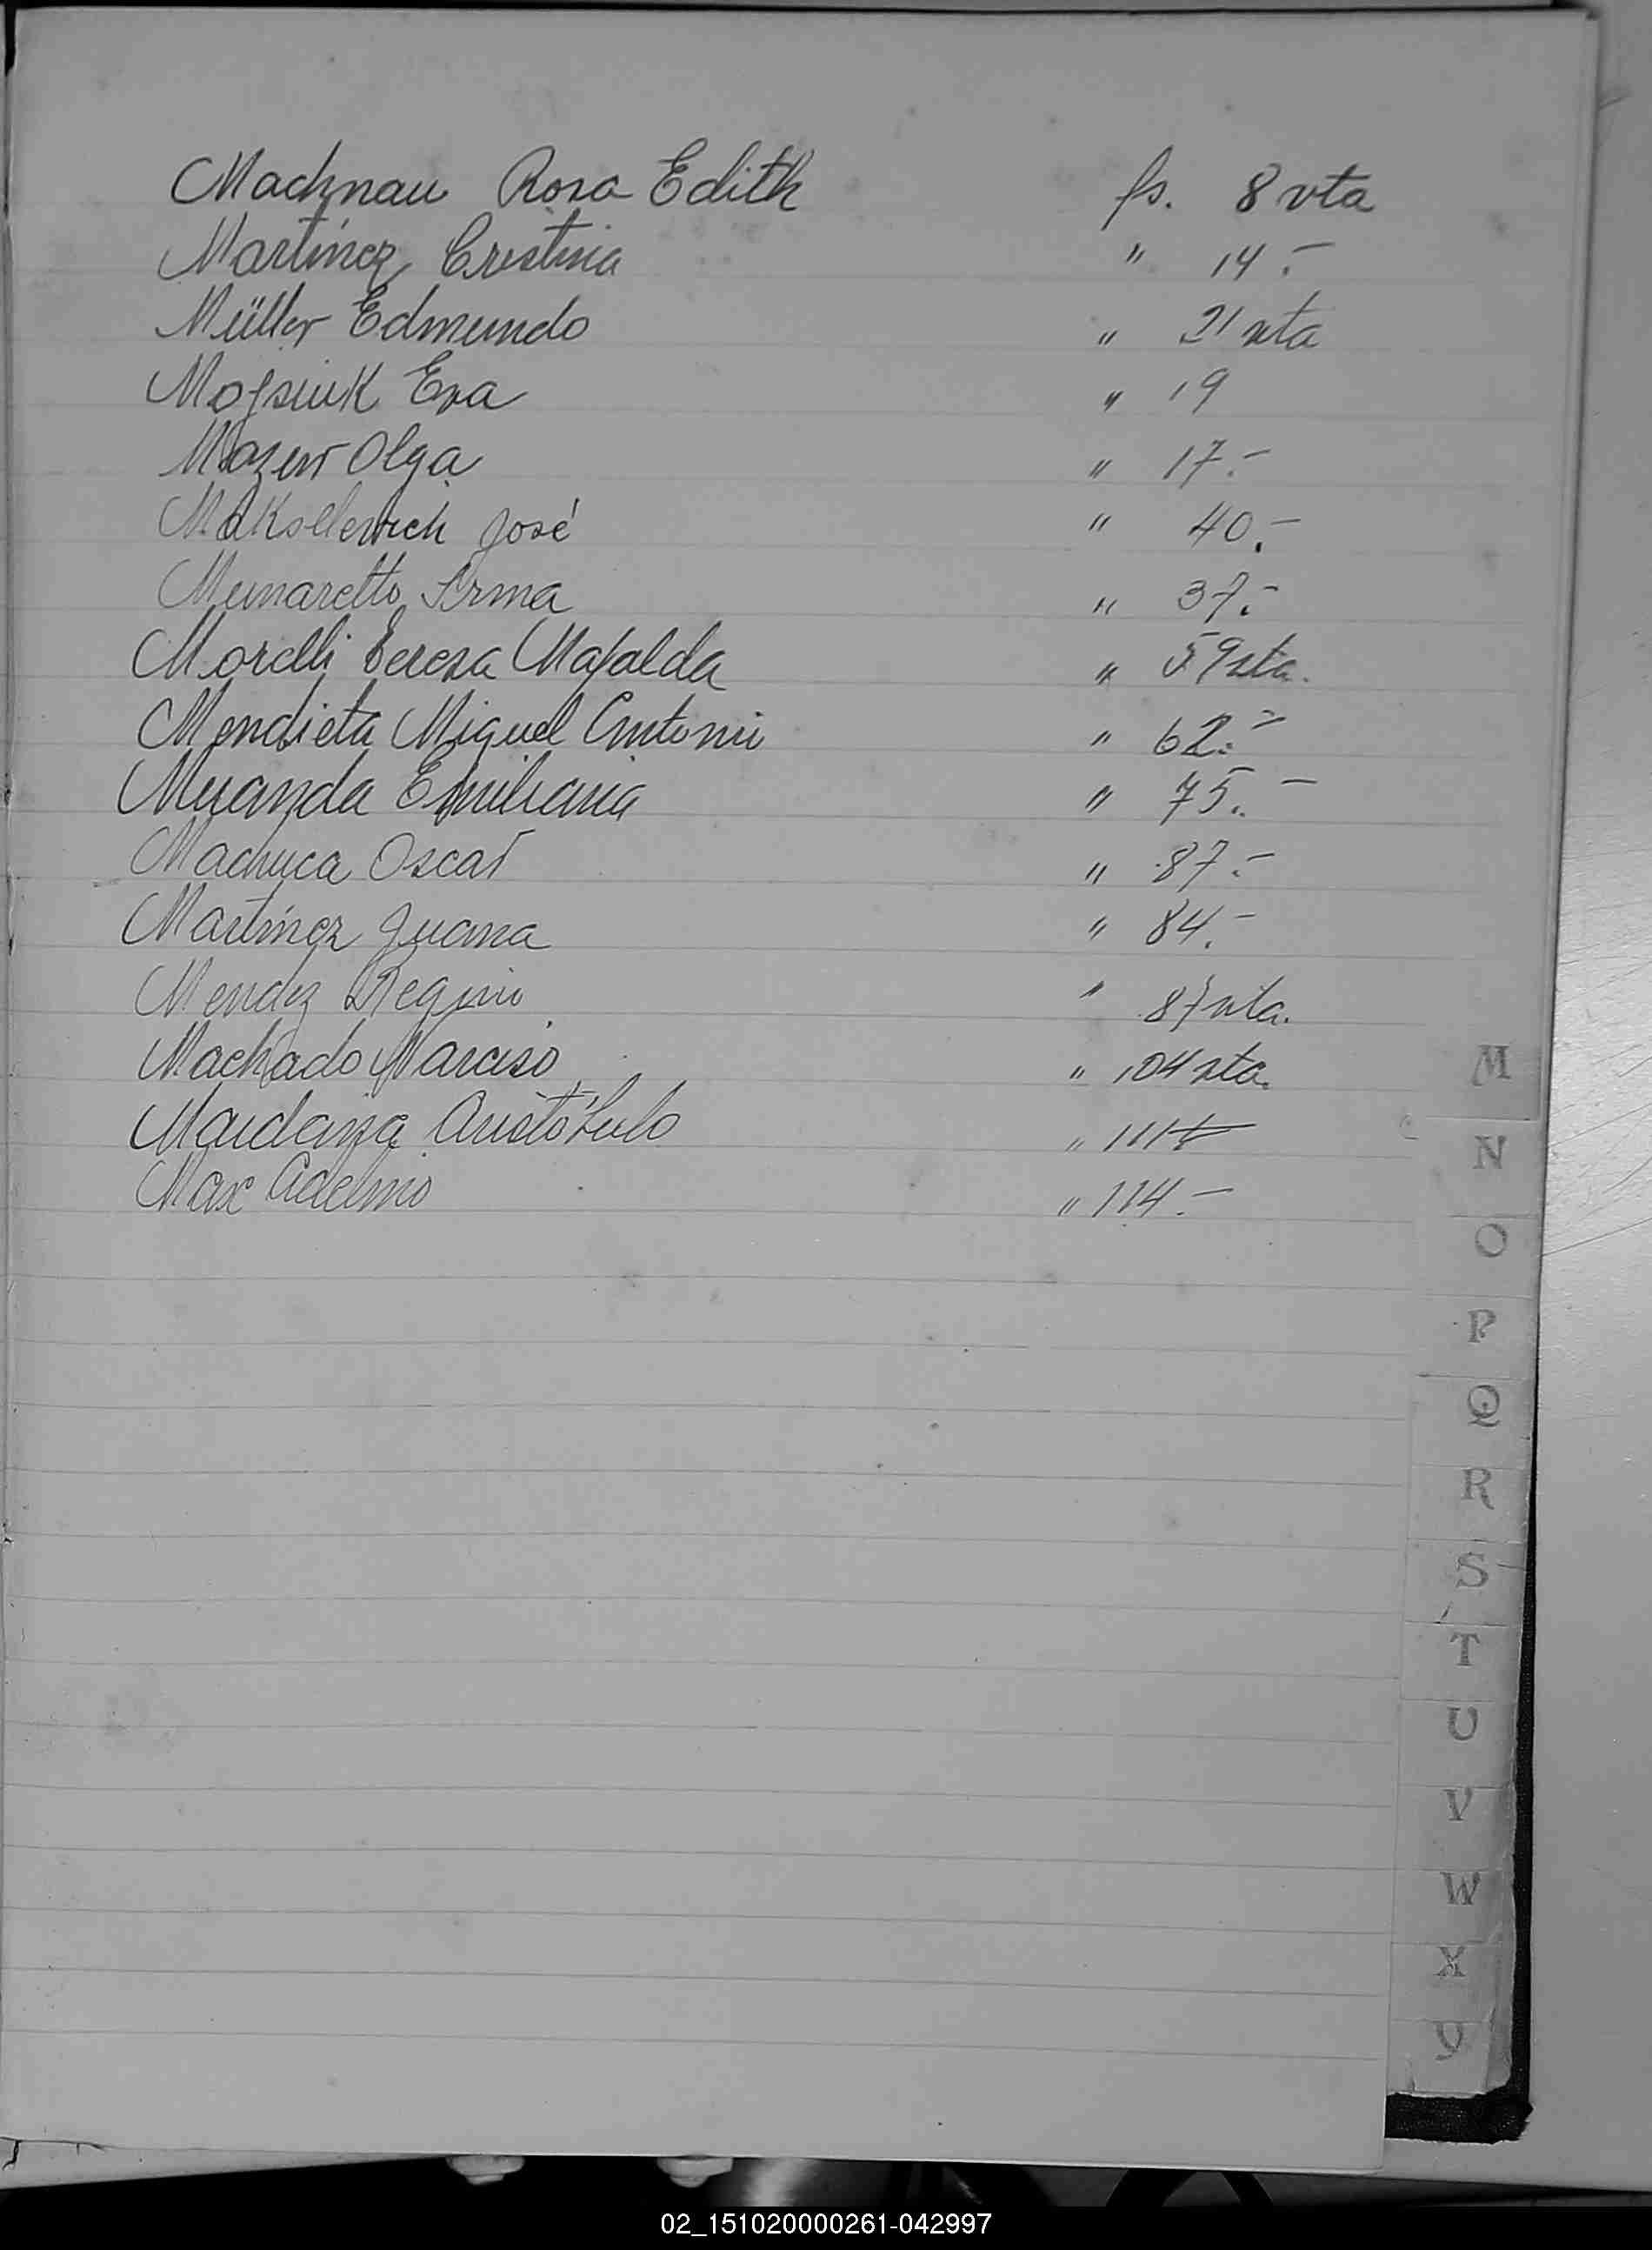 Machnau Rosa Edith fs. 8 vta
Martínez Cristina " 14.-
Müller Edmundo " 21 vta
Mojsiuk Eva " 19
Mazur Olga " 17.-
José " 40.-
Munaretto Irma " 37.-
Morelli Teresa Mafalda " 59 vta.
Mendieta Miguel Antonio " 62.-
Miranda Emiliana " 75.-
Machuca Oscar " 87.-
Martínez Juana " 84.-
Mendez Regino " 87 vta.
Machado Narciso " 104 vta.
Maidana Aristóbulo " 111
Max Adelmo " 114.-
M
N
O
P
Q
R
S
T
U
V
W
X
Y
02_151020000261-042997